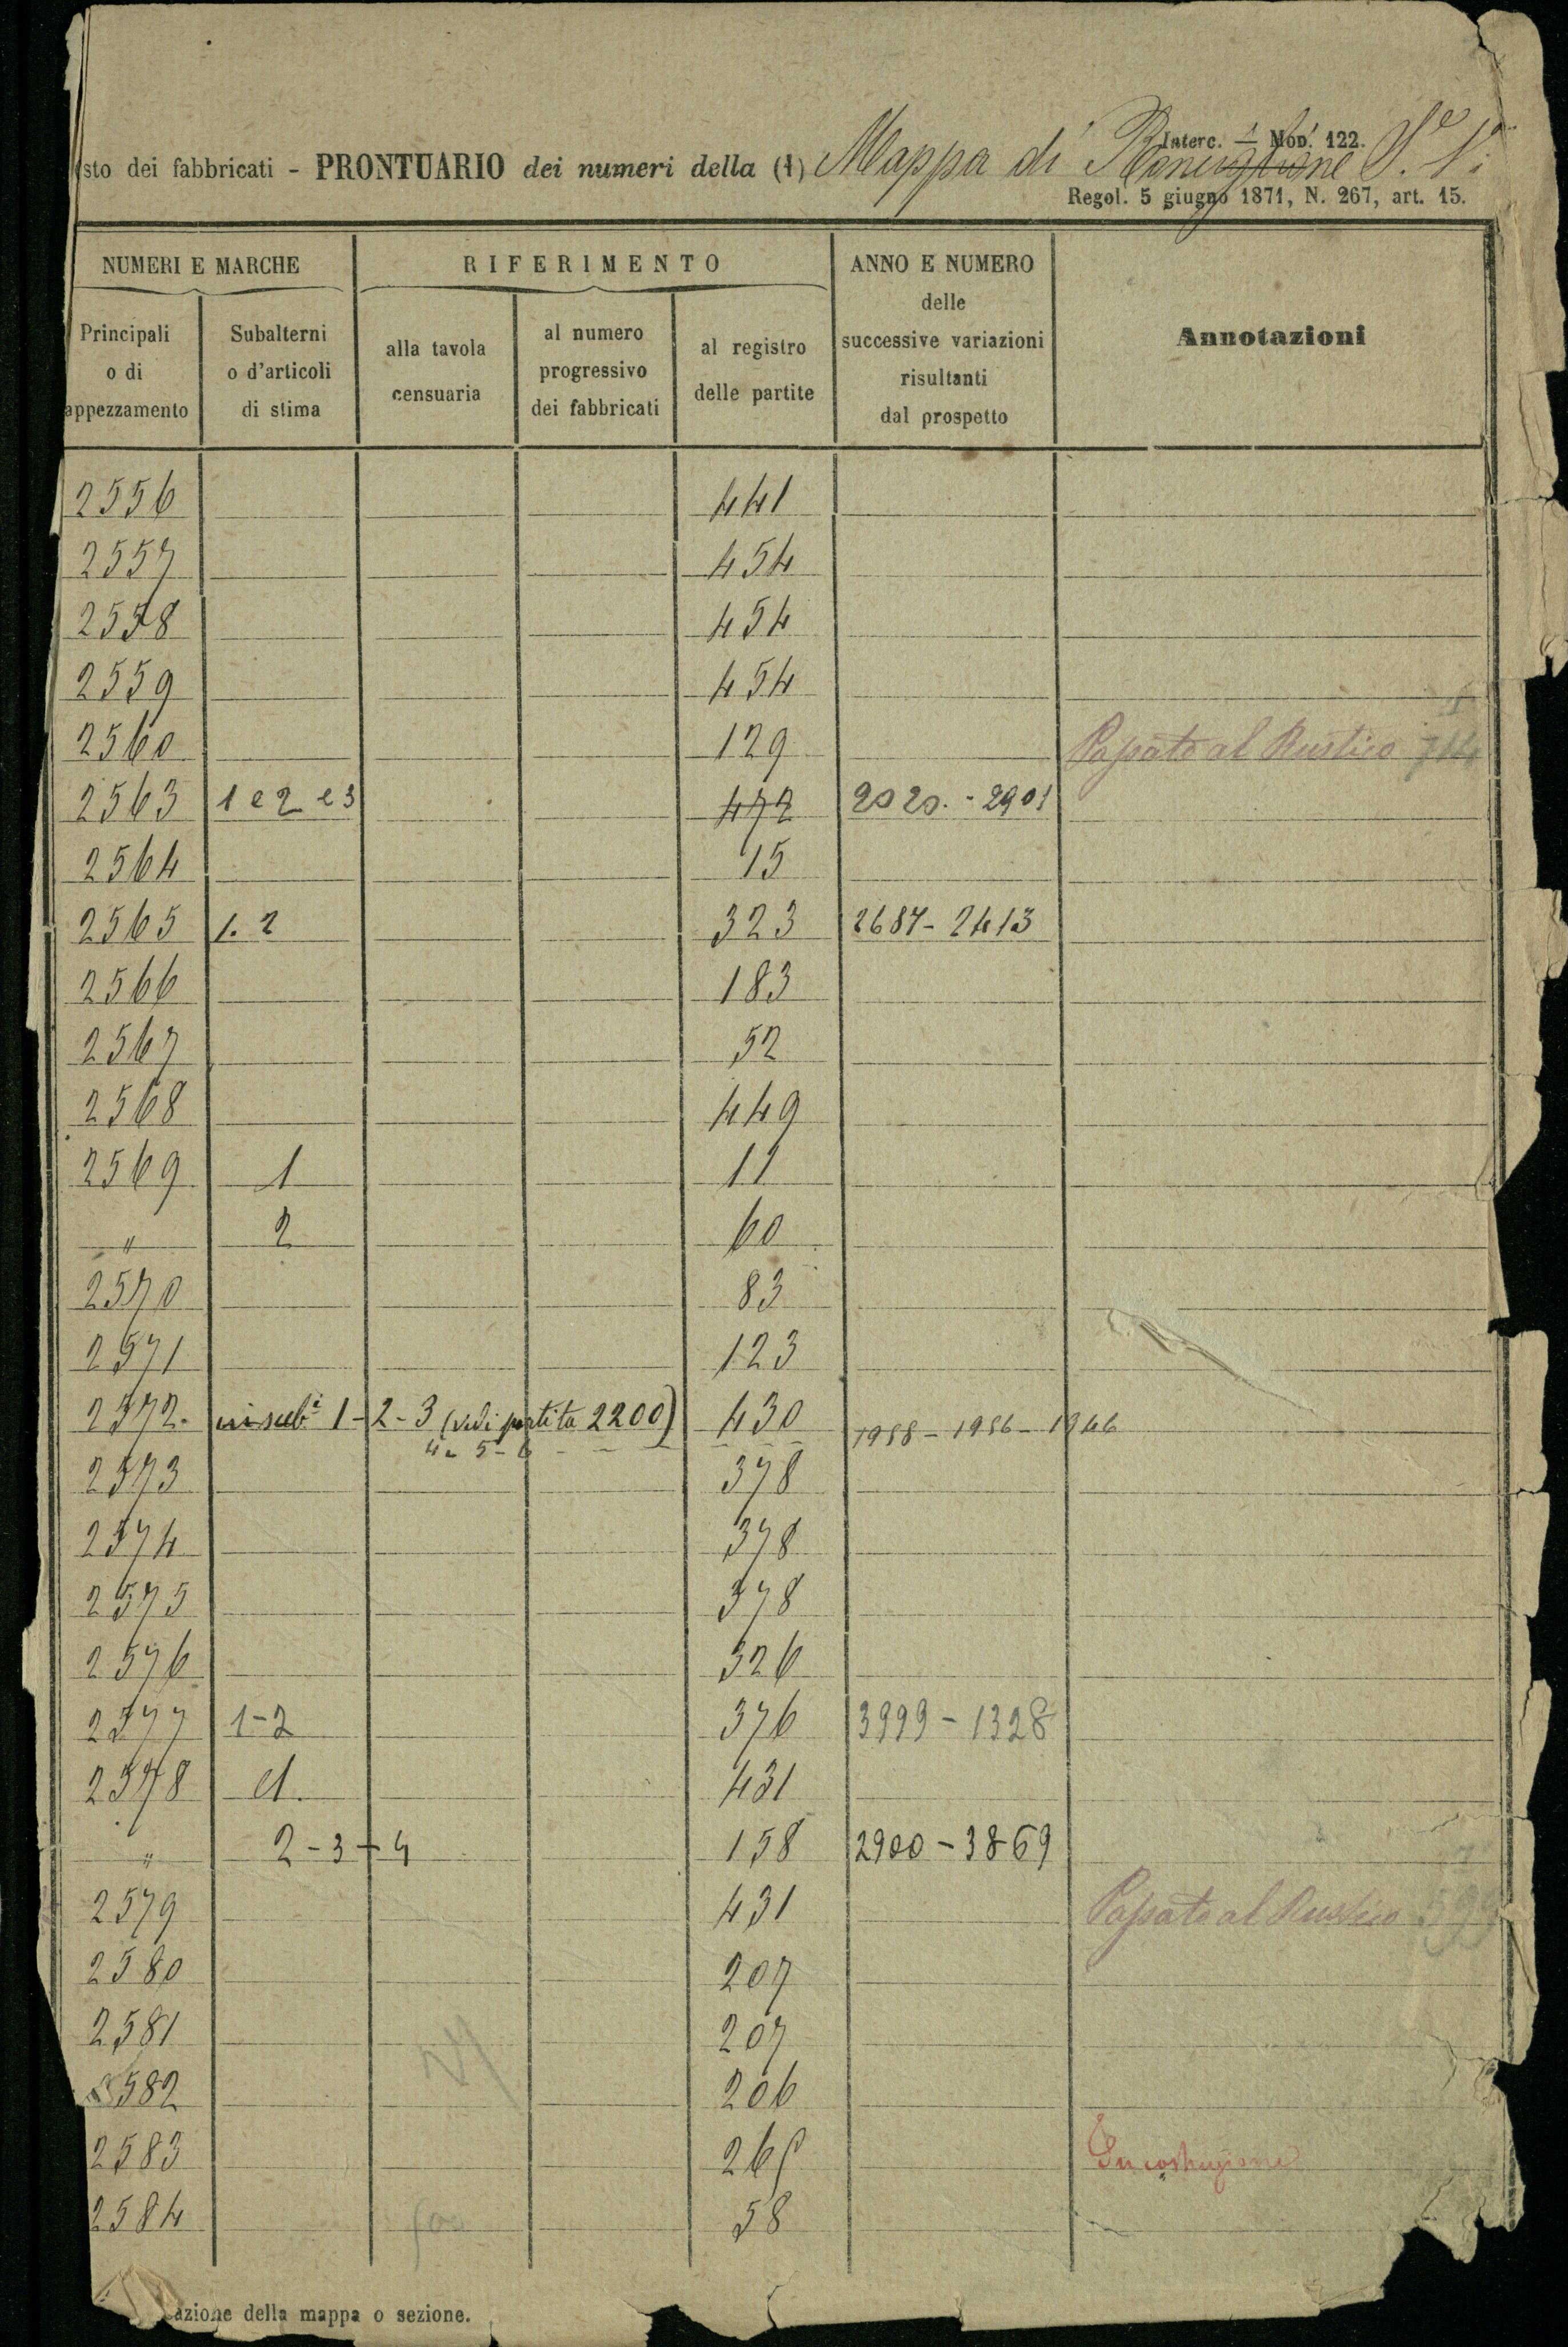 Interc. 1 Mod. 122.
sto dei fabbricati - PRONTUARIO dei numeri della (1) Mappa di Ronciglione S.e 1.a
Regol. 5 giugno 1871, N. 267, art. 15.
NUMERI E MARCHE RIFERIMENTO ANNO E NUMERO
delle
successive variazioni
risultanti
dal prospetto
Annotazioni
Principali
o di
appezzamento
Subalterni
o d'articoli
di stima
alla tavola
censuaria
al numero
progressivo
dei fabbricati
al registro
delle partite
2556 441
2557 454
2558 454
2559 454
2560 129 Passato al Rustico 714
2563 1 e 2 e 3 472 2020. - 2901
2564 15
2565 1. 2 323 2687 - 2413
2566 183
2567 52
2568 449
2569 1 11
" 2 60
2570 83
2571 123
2572. sub.i 1-2-3 (vedi partita 2200) 430 1988 - 1986 - 1946
4 - 5 - 6 - - -
2573 378
2574 378
2575 378
2576 326
2577 1-2 376 3999 - 1328
2578 1. 431
" 2-3-4 158 2900 - 3869
2579 431 Passato al Rustico
2580 207
2581 207
2582 206
2583 265 In costruzione
2584 58
azione della mappa o sezione.